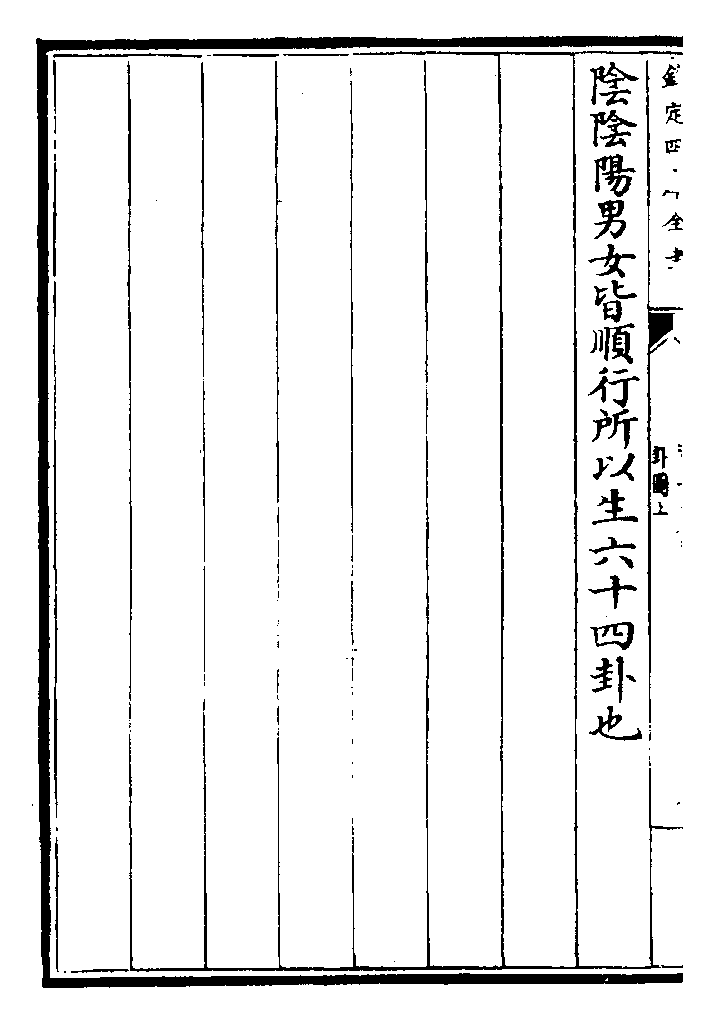 定四全
卦圖上
陰陰陽男女皆順行所以生六十四卦也